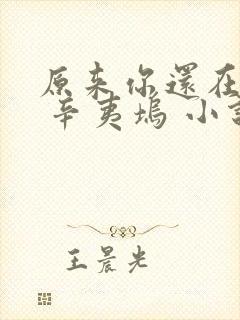 原来你還在
辛夷塢 小
王晨光